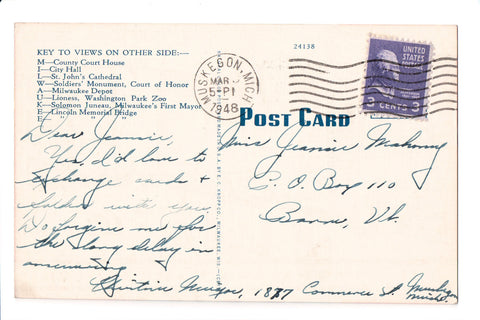 KEY TO VIEWS ON OTHER SIDE:—
M—County Court House
I—City Hall
L—St. John's Cathedral
W—Soldiers' Monument, Court of Honor
A—Milwaukee Depot
U—Lioness, Washington Park Zoo
K—Solomon Juneau, Milwaukee's First Mayor
E—Lincoln Memorial Bridge
E— " "
24138
MUSKEGON, MICH
MAR
5-PM
1948
UNITED STATES
3 CENTS 3
POST CARD
Dear Jeannie,
Yes, I'd love to
exchange cards &
folders with you.
Do forgive me for
the long delay in
answering.
Miss Jeannie Mahoney
P. O. Box 110
Barre, Vt.
1877 Commerce St. Muskegon
Mich.